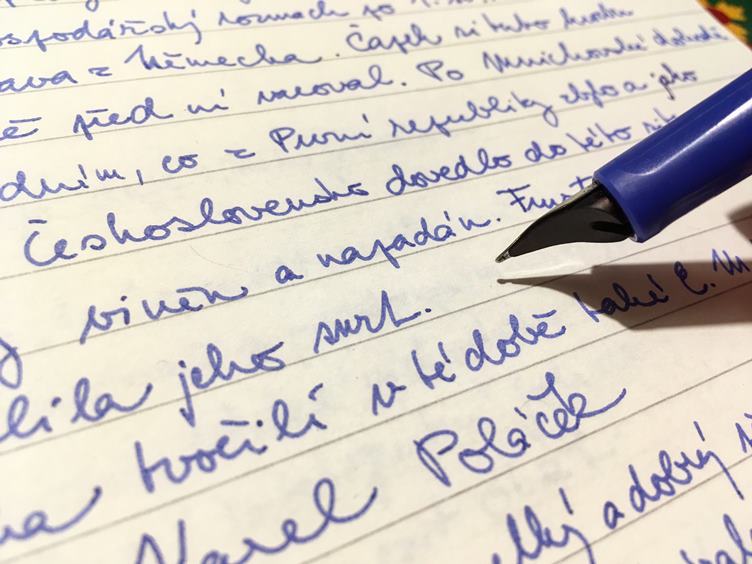 ospodářský rozmach po
ava z Německa. Čapek si tuto hrozbu
ě před ní varoval. Po Mnichovské dohodě
dním, co z První republiky zbylo a jako
Československo dovedlo do této sit
viněn a napadán. Frust
lila jeho smrt.
tvořili v té době také E. M
Karel Poláček
elký a dobrý